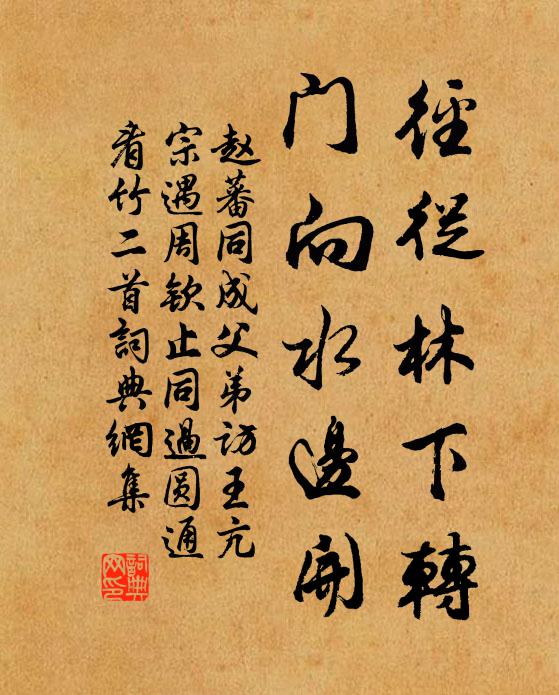 徑從林下轉
门向水邊開
赵蕃同成父弟访王亢
宗遇周钦止同過圆通
看竹二首詞典網集
詞典网印